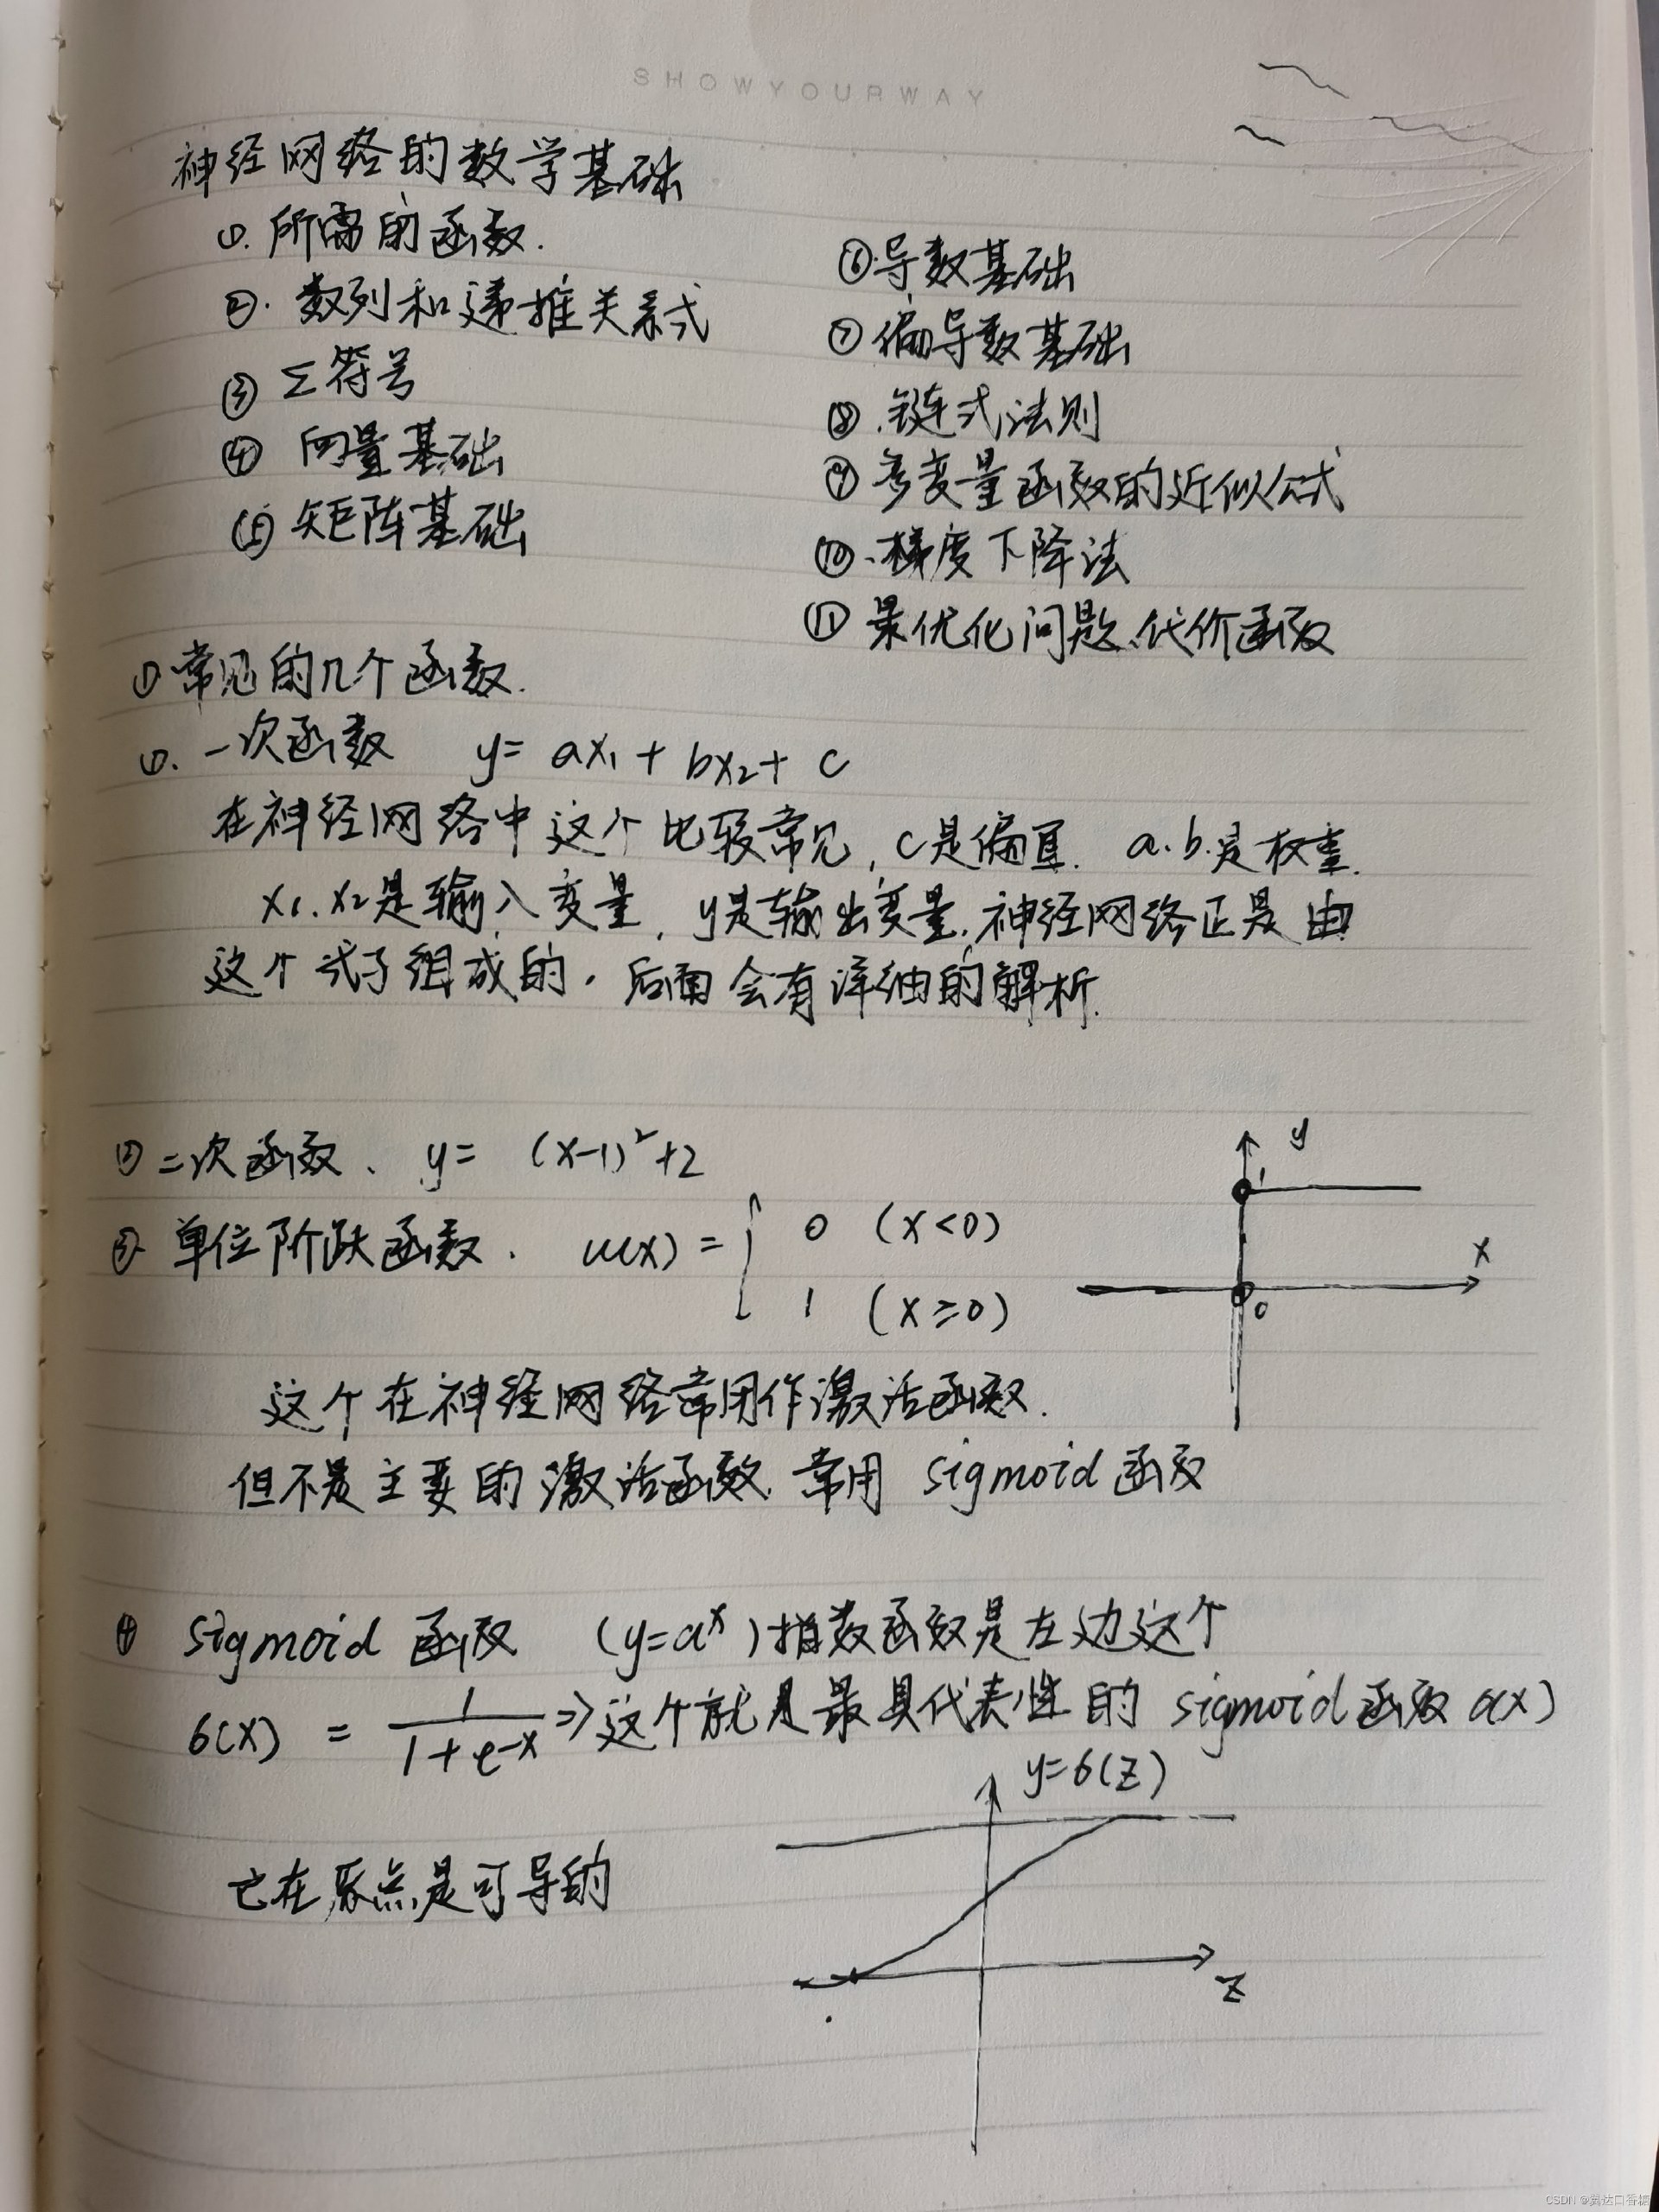 SHOWYOURWAY
神经网络的数学基础
①. 所需的函数.
②. 数列和递推关系式
③ Σ符号
④ 向量基础
⑤ 矩阵基础
⑥导数基础
⑦偏导数基础
⑧.链式法则
⑨多变量函数的近似公式
⑩.梯度下降法
⑪最优化问题、代价函数
①常见的几个函数.
①. 一次函数 y= ax₁ + bx₂ + c
在神经网络中这个比较常见, c是偏置. a.b.是权重.
x₁.x₂是输入变量, y是输出变量.神经网络正是由
这个式子组成的. 后面会有详细的解析.
②二次函数、 y= (x-1)²+2
③ 单位阶跃函数. u(x) = { 0 (x<0)
1 (x≥0)
y
1
x
0
这个在神经网络常用作激活函数.
但不是主要的激活函数.常用 sigmoid函数
④ sigmoid 函数 (y=aˣ)指数函数是左边这个
σ(x) = 1/(1+e-x) ⇒这个就是最具代表性的 sigmoid函数 σ(x)
y=σ(z)
它在原点是可导的
z